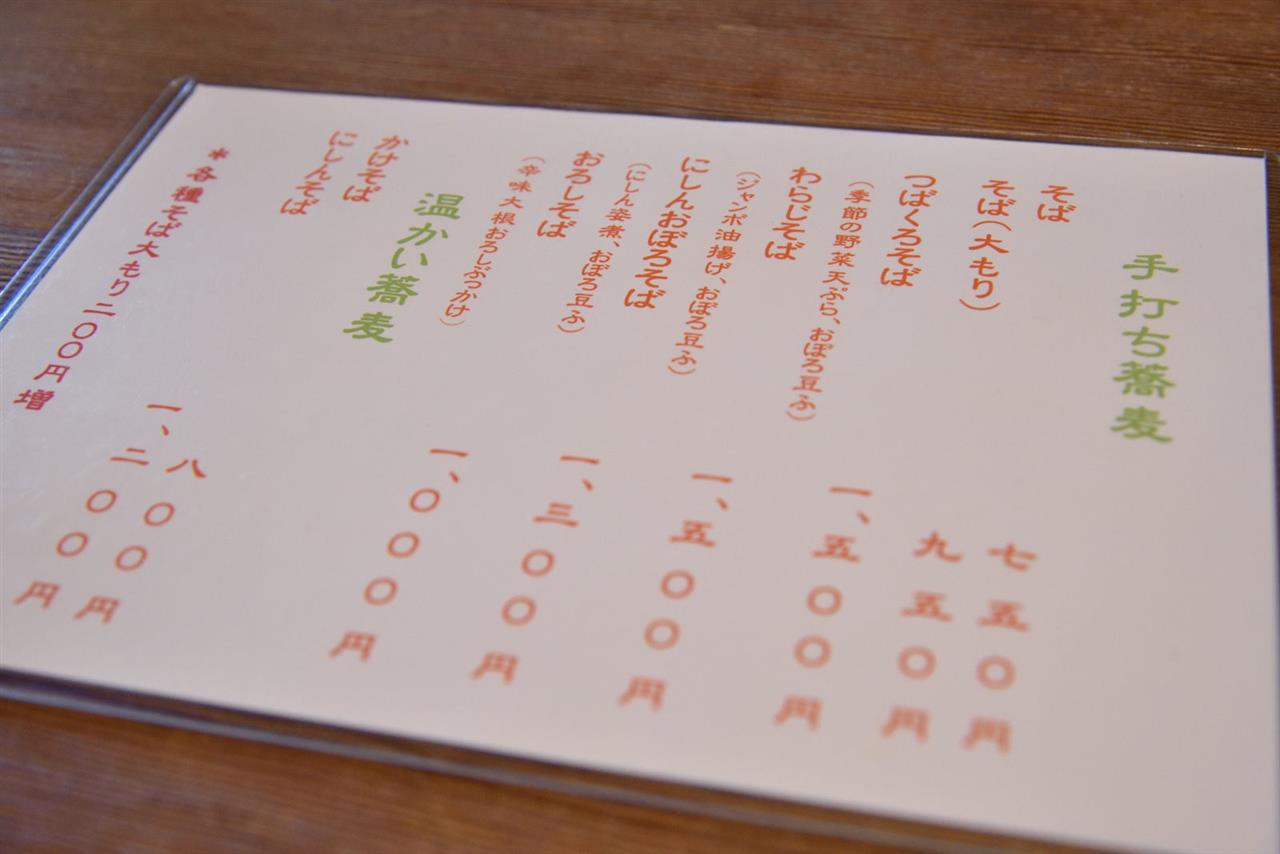 手打ち蕎麦
そば 七五〇円
そば(大もり) 九五〇円
つばくろそば 一、五〇〇円
(季節の野菜天ぷら、おぼろ豆ふ)
わらじそば 一、五〇〇円
(ジャンボ油揚げ、おぼろ豆ふ)
にしんおぼろそば 一、三〇〇円
(にしん姿煮、おぼろ豆ふ)
おろしそば 一、〇〇〇円
(辛味大根おろしぶっかけ)
温かい蕎麦
かけそば 八〇〇円
にしんそば 一、二〇〇円
*各種そば大もり二〇〇円増